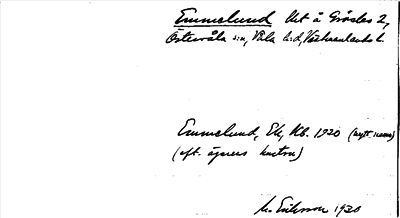 Emmelund lht å Gräsbo 2,
Östervåla sn, Våla hd, Västmanlands l.
Emmelund, Ek, Kb. 1920 (nytt namn)
(eft. ägarens hustru)
M. Eriksson 1930